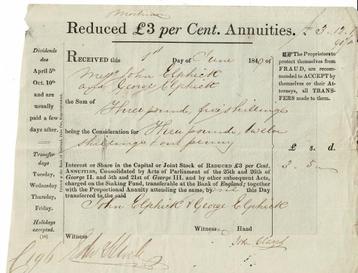 Reduced £3 per Cent. Annuities.
Dividends
due
April 5th
Oct. 10th
and are
usually
paid a few
days after.
Transfer
days
Tuesday,
Wednesday,
Thursday,
Friday.
Holidays
excepted.
RECEIVED this Day of June
Messrs John Elphick
and George Elphick
the Sum of Three pounds, five shillings
being the Consideration for Three pounds, twelve
shillings & one penny
Interest or Share in the Capital or Joint Stock of REDUCED £3 per Cent.
ANNUITIES, Consolidated by Acts of Parliament of the 25th and 26th of
George II. and 5th and 21st of George III. and by other subsequent Acts,
charged on the Sinking Fund, transferable at the Bank of England; together with
the Proportional Annuity attending the same, by this Day
transferred to the said
John Elphick & George Elphick
Witness Hand
Witness
The Proprietors
to protect themselves from
FRAUD, are
recommended to
ACCEPT by
themselves or
their Attornies,
all TRANS-
FERS made to
them.
£ s. d.
3 5